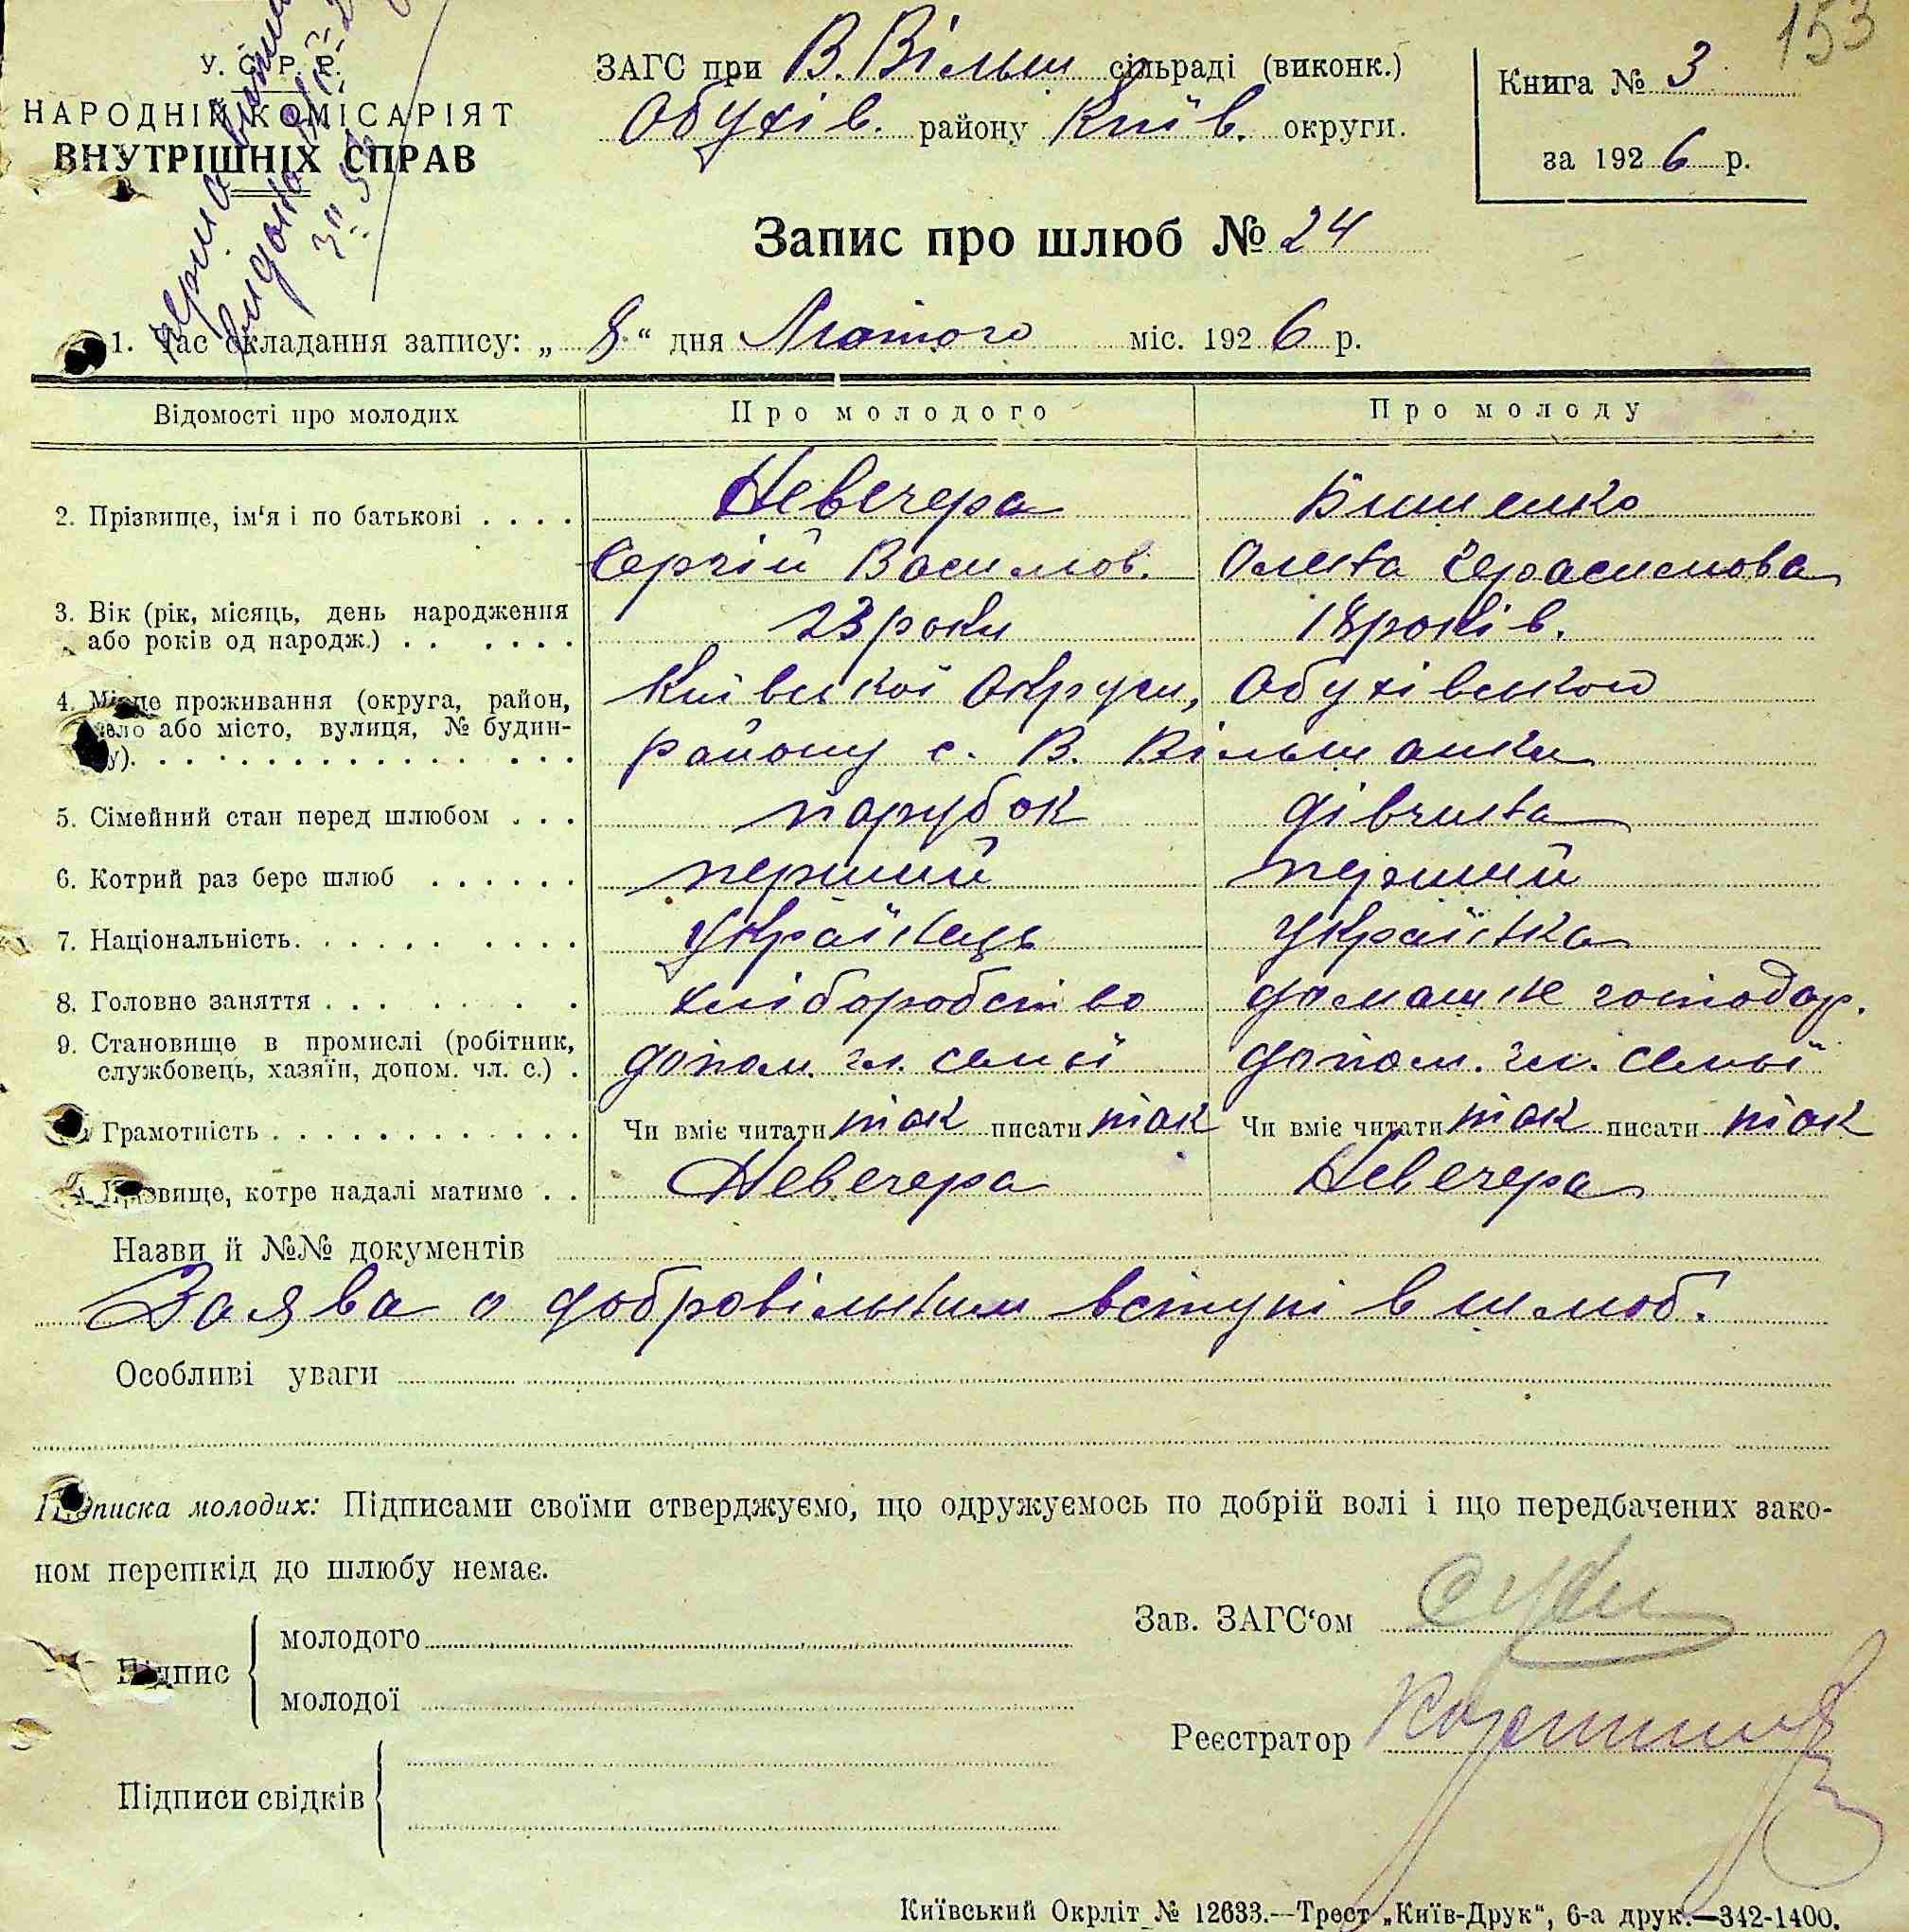 153
У. С. Р. Р.
НАРОДНІЙ КОМІСАРІЯТ
ВНУТРІШНІХ СПРАВ
ЗАГС при В. Вільш сільраді (виконк.)
Обухів. району Київ. округи.
Книга № 3
за 1926 р.
Запис про шлюб № 24
1. Час складання запису: „ 8 “ дня Лютого міс. 1926 р.
Відомості про молодих Про молодого Про молоду
2. Прізвище, ім‘я і по батькові . . . . Невечера
Сергій Васильов. Олена Герасимова
3. Вік (рік, місяць, день народження
або років од народж.) . . . . . . 23 роки 18 років.
4. Місце проживання (округа, район, Київської округи, Обухівського
село або місто, вулиця, № будин-
ку). району с. В. Вільшанки
5. Сімейний стан перед шлюбом . . . парубок дівчина
6. Котрий раз бере шлюб . . . . . . перший перший
7. Національність. . . . . . . . . українець українка
8. Головне заняття . . . . . . . хліборобство домашнє господар.
9. Становище в промислі (робітник,
службовець, хазяїн, допом. чл. с.) . допом. чл. семьї допом. чл. семьї
Грамотність . . . . . . . . . . . . Чи вміє читати так писати так Чи вміє читати так писати так
Прізвище, котре надалі матиме . . Невечера Невечера
Назви й №№ документів
Заява о добровільним вступі в шлюб.
Особливі уваги
Підписка молодих: Підписами своїми стверджуємо, що одружуємось по добрій волі і що передбачених зако-
ном перешкід до шлюбу немає.
Зав. ЗАГС‘ом
Підпис
молодого
молодої
Реєстратор
Підписи свідків
Київський Окрліт № 12633.—Трест „Київ-Друк“, 6-а друк.—342-1400.